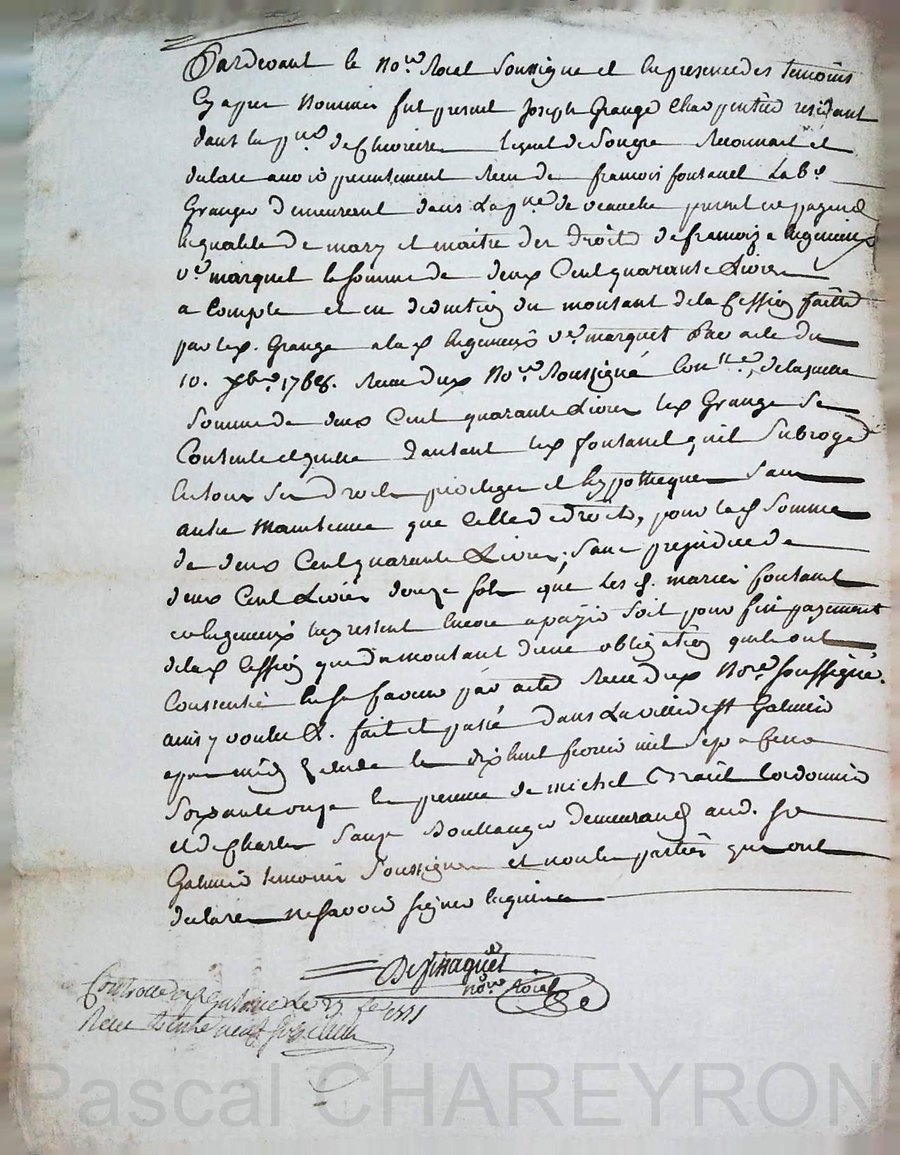 Pardevant le no.re Roial Soussigne et en presence des temoins
Cy apres Nommés fut present Joseph Grange Charpentier residant
dans la p.sse de Lequel de Son gre Reconnait et
declare avoir presentement Receu de francois fontanel La B.r
Granger demeurent dans La p.sse de veauche present ce payant
En qualité de mary et maitre des droits de francoize
v.e marquet la somme de deux Cent quarante Livres
a Compte et en deduction du montant de la Cession faitte
par led. Grange a lad. v.e marquet Par acte du
10. xbre 1768. Receu dud. No.re Soussigné Con.llé, de laquelle
Somme de deux Cent quarante Livres led. Grange Se
Contente et quitte d'autant led. fontanel qu'il Subroge
En tous Ses droits privileges et hypotheques Sans
autre Maintenue que Celle de droit, pour lad. Somme
de deux Cent quarante Livres, Sans prejudice de
deux Cent Livres douze sols que Les d. mariés fontanel
et luy restent Encore a payer Soit pour fin payement
de lad. Cession que du montant d'une obligation qu'ils ont
Consentie En sa faveur par acte Receu dud. No.re soussigné.
ainsi voulu &. fait et passé dans La ville de S.t Galmier
apres midy le dix huit fevrier mil Sept Cens
Soixante onze En presence de michel Cordonnier
et de Charles Sauze Boullanger demeurans aud. S.t
Galmier temoins Soussignes et non les parties qui ont
declaré ne Savoir signer Enquis
no.re Roial
Controllé a S.t Galmier Le 23 fe. 1771
Receu trente neuf sols
Pascal CHAREYRON